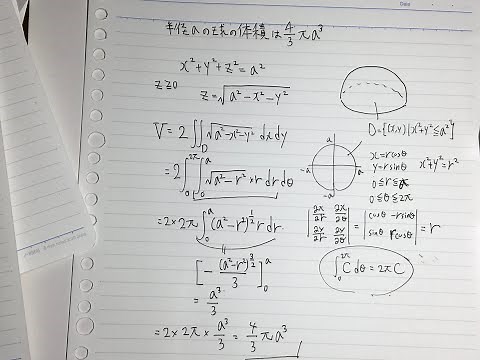 半径aの球の体積は 4/3 πa³
x²+y²+z²=a²
z≧0 z=√(a²-x²-y²)
D={(x,y)|x²+y²≦a²}
V=2∬_D √(a²-x²-y²) dxdy
=2∫₀^{2π}∫₀^a √(a²-r²)×r dr dθ
a
-a a
-a
x=rcosθ
y=rsinθ x²+y²=r²
0≦r≦a
0≦θ≦2π
=2×2π∫₀^a (a²-r²)^{1/2} r dr
|∂x/∂r ∂x/∂θ; ∂y/∂r ∂y/∂θ| = |cosθ -rsinθ; sinθ rcosθ| = r
[-(a²-r²)^{3/2}/3]₀^a
∫₀^{2π} C dθ=2πC
= a³/3
=2×2π×a³/3 = 4/3 πa³